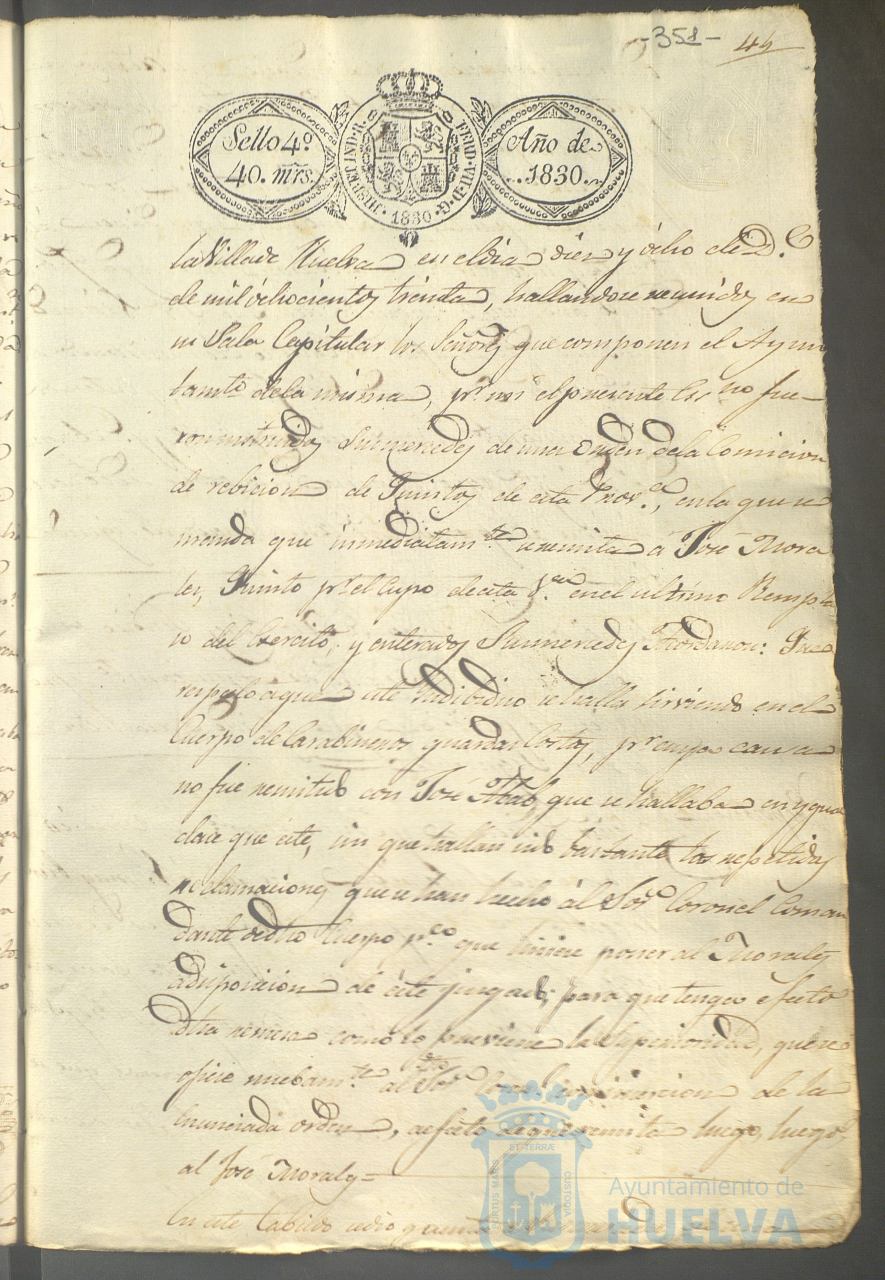 -351-
44
Sello 4º
40. mrs.
HISP. ET IND. R. FERD. VII. D. G.
1830
Año de
1830.
la Villa de Huelva en el dia diez y ócho de D.e
de mil óchocientos treinta, hallandose reunidos en
su Sala Capitular los Señores que componen el Ayun
tamto de la misma, pr. mi el presente Escno fue-
ron instruidos Sus mercedes de una Orden de la Comicion
de rebicion de Quintos de esta Prov.ca, en la que se
manda que inmediatam.te se remita á José Mora
les, Quinto pr. el Cupo de esta V.a en el ultimo Rempla
so del Exercito, y enterados Sus mercedes Acordaron: Que
respecto á que este Individuo se halla sirviendo en el
Cuerpo de Carabineros guardas Costas, pr. cuya causa
no fue remitido con José que se hallaba en ygual
clace que éste, sin que hallan sido bastante las repetidas
reclamaciones que se han hecho ál Sor. Coronel Coman
dante de dho Cuerpo p.a que hiciese poner al Morales
á disposicion de éste juzgado; para que tenga efecto
dha remesa como lo previene la Superioridad, que se
oficie nuebam.te al dho Sor. con la incercion de la
enunciada orden, á efecto de que remita luego, luego,
al José Morales =
En este Cabildo se dio cuenta
ET TERRÆ
PORTUS MARIS
CUSTODIA
Ayuntamiento de
HUELVA